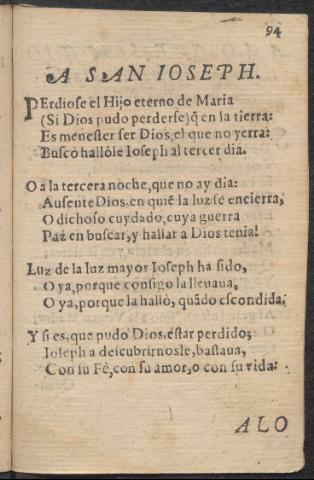 94
A SAN IOSEPH.
PErdiose el Hijo eterno de Maria
(Si Dios pudo perderse) q̃ en la tierra:
Es menester ser Dios, el que no yerra:
Buscò hallóle Ioseph al tercer dia.
O a la tercera noche, que no ay dia:
Ausente Dios, en quiẽ la luz se encierra,
O dichoso cuydado, cuya guerra
Paz en buscar, y hallar a Dios tenia!
Luz de la luz mayor Ioseph ha sido,
O ya, porque consigo la lleuaua,
O ya, porque la hallò, quãdo escondida;
Y si es, que pudo Dios, estar perdido;
Ioseph a descubrirnosle, bastaua,
Con su Fè, con su amor, o con su vida:
A LO